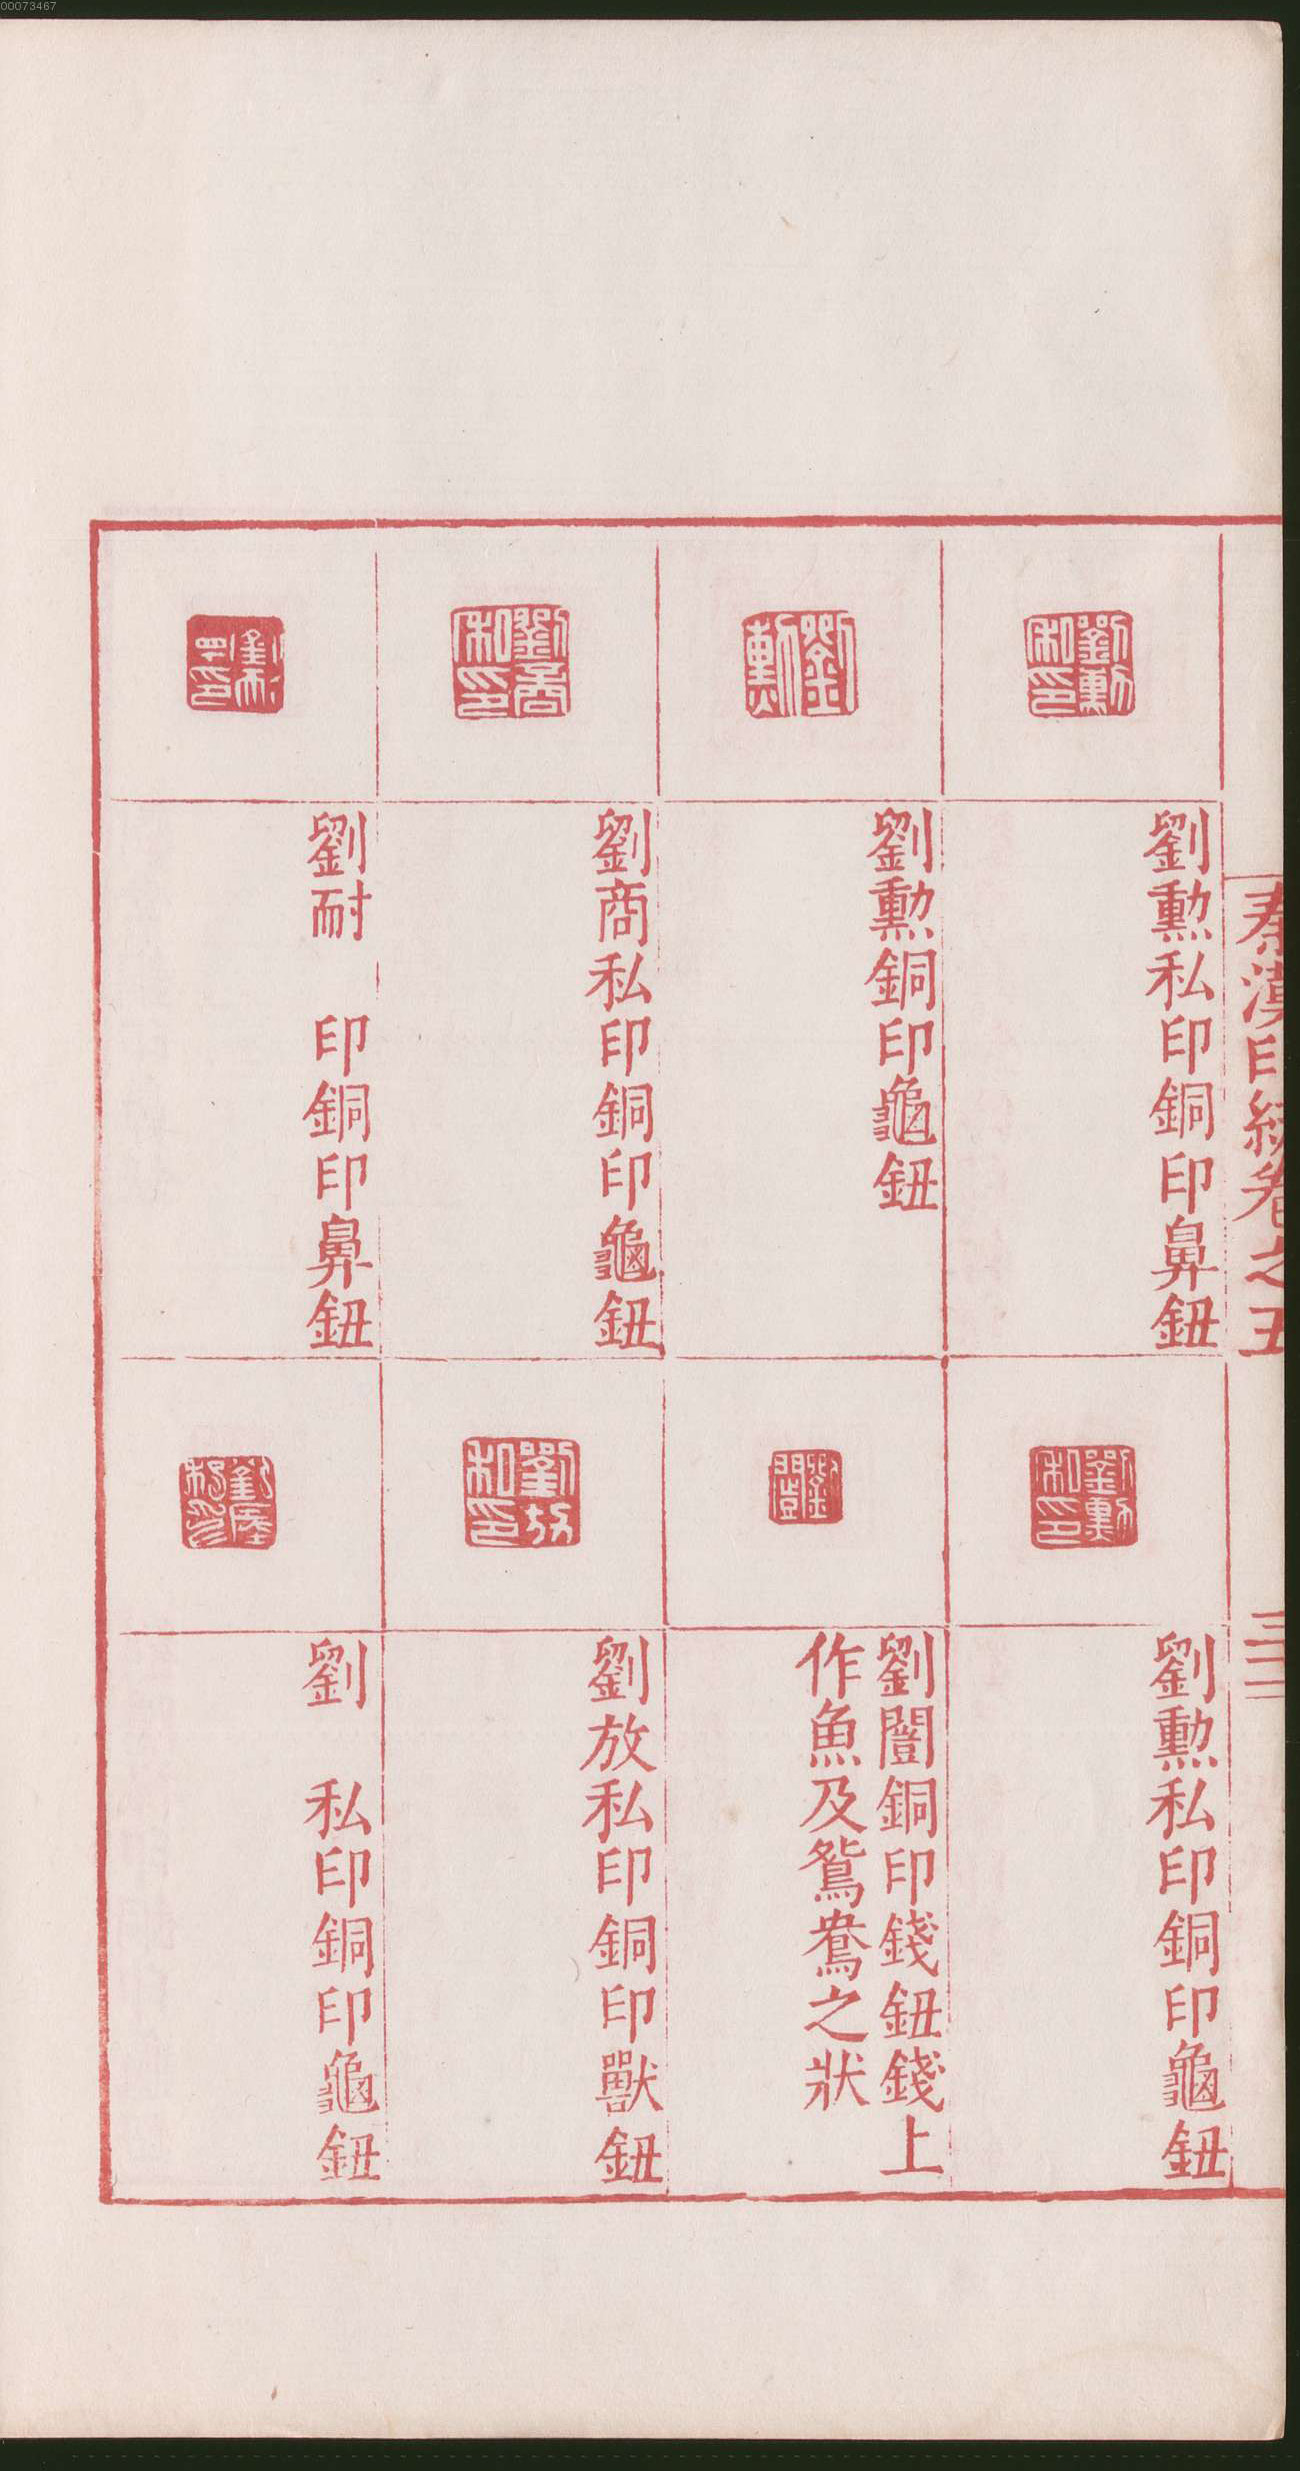 00073467
秦漢印統卷之五
三二
劉勳私印銅印鼻鈕
劉勳銅印龜鈕
劉商私印銅印龜鈕
劉耐　印銅印鼻鈕
劉勳私印銅印龜鈕
劉闓銅印錢鈕錢上
作魚及鴛鴦之狀
劉放私印銅印獸鈕
劉　私印銅印龜鈕
劉勳私印
劉勳
劉商私印
劉勳私印
劉放私印